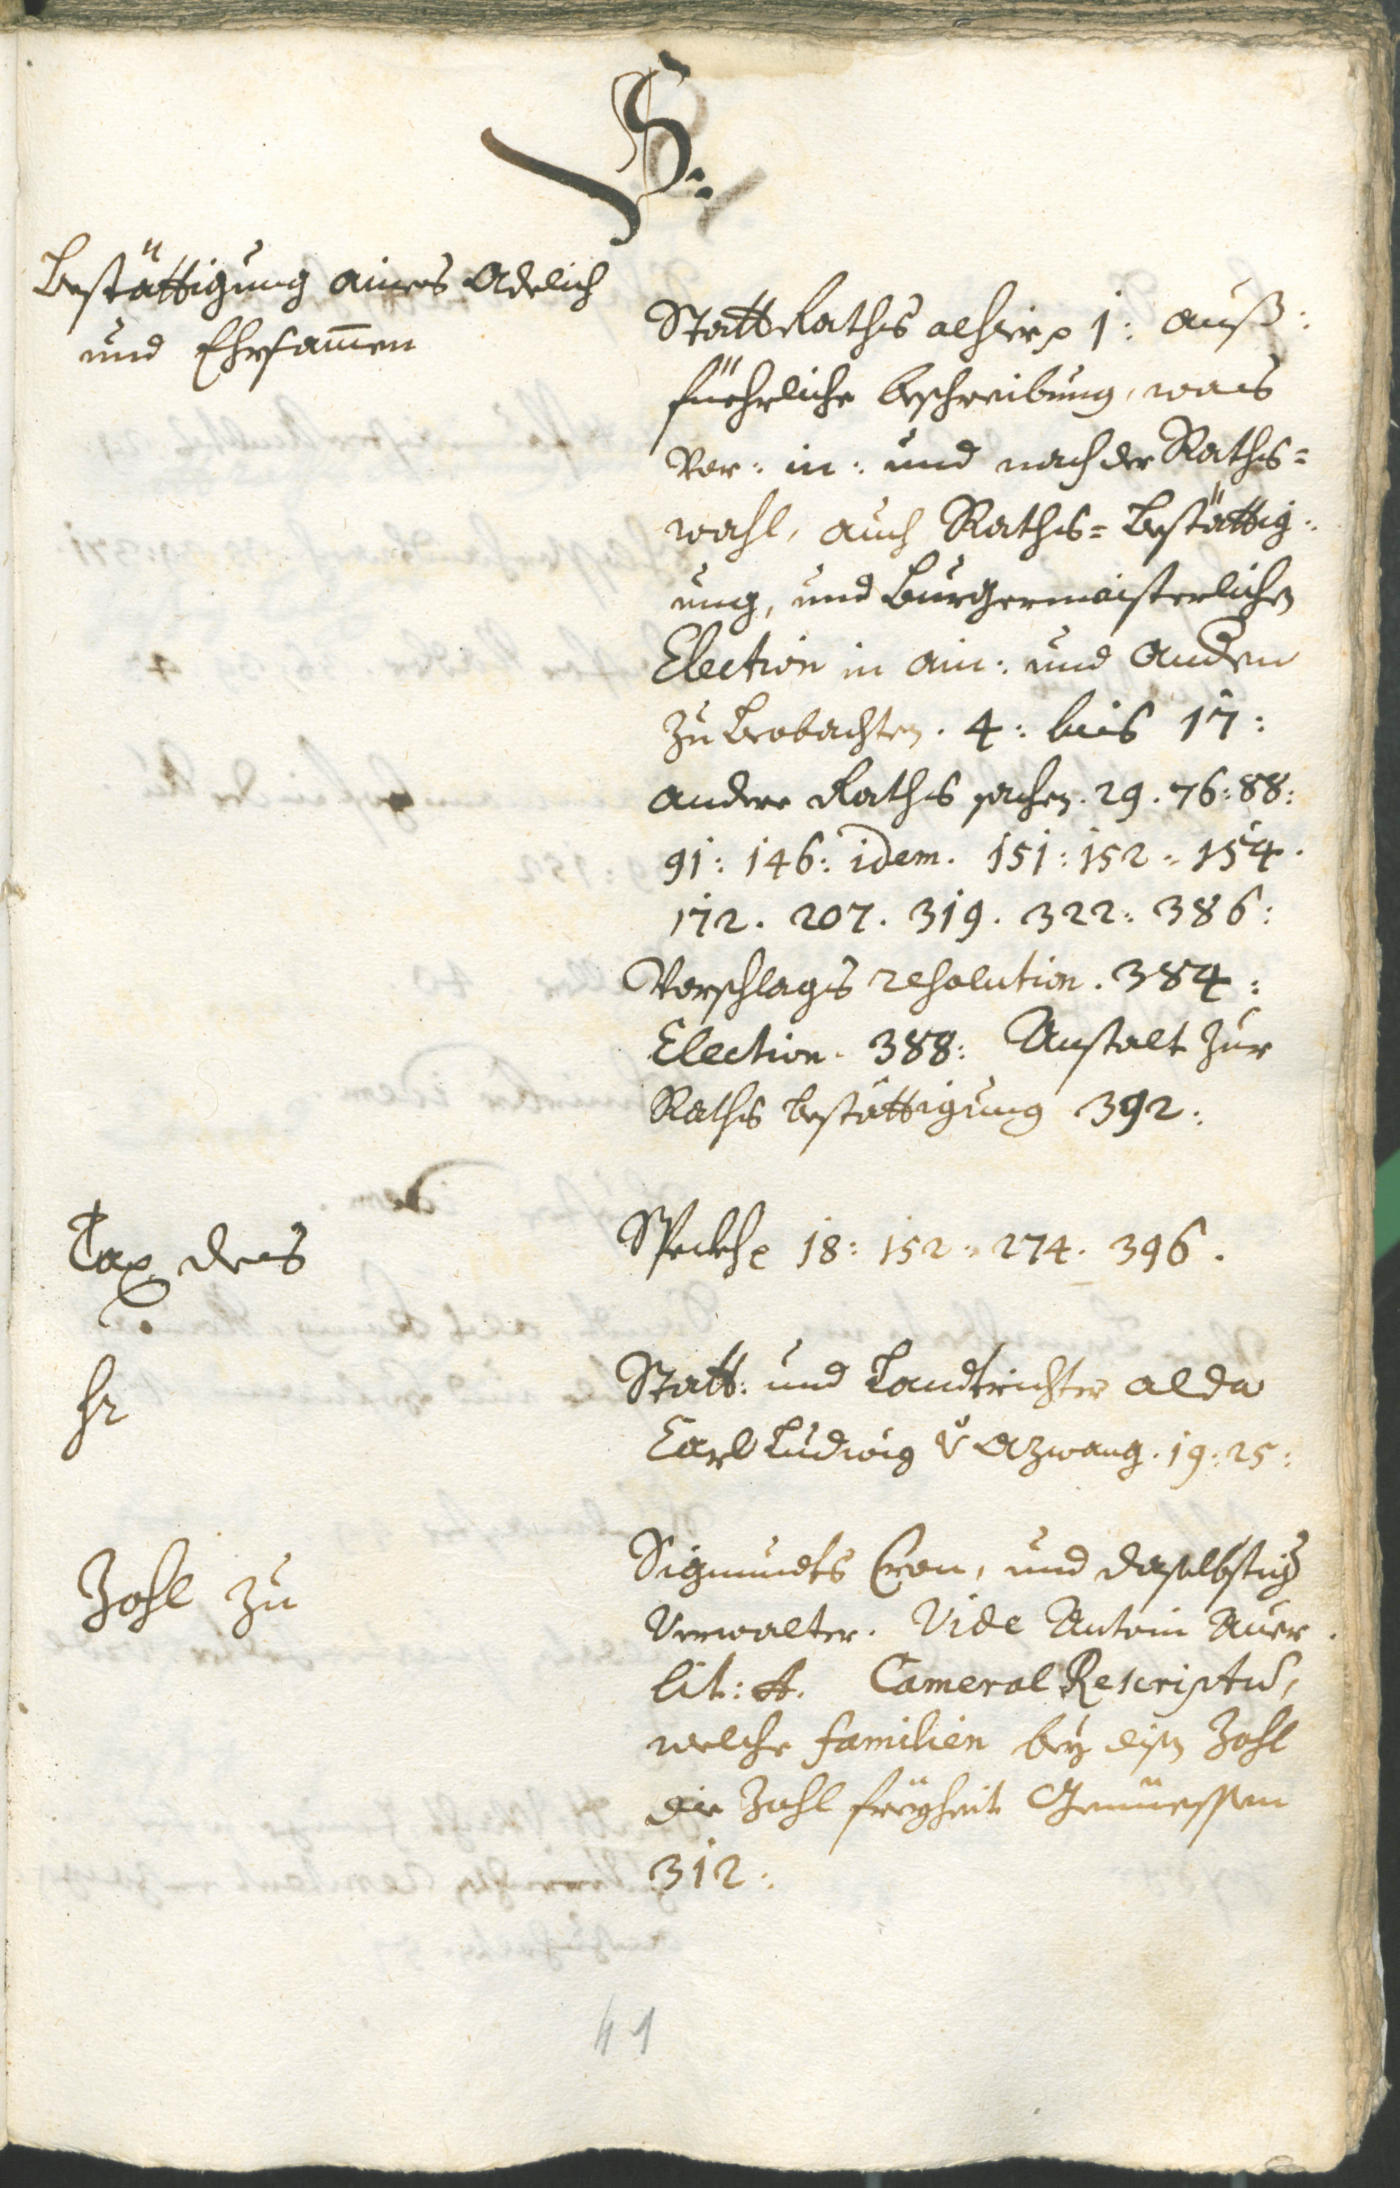 S:
Bestättigung aines Adelich
und Ehrsam̅en
StattRaths alhier p 1: auß:
füehrliche beschreibung, was
Vor: in: und nach der Raths=
wahl, auch Raths= Bestättig:
ung, und Burgermaisterlichen
Election in ain: und Andern
zu beobachten. 4: bis 17:
andere Raths sachen. 29. 76: 88:
91: 146: idem. 151: 152: 154.
172. 207. 319. 322: 386:
Vorschlags resolution. 384:
Election. 388: Anstalt zur
Raths bestättigung 392:
Tax des
18: 152: 274. 396.
hr
Statt: und Landtrichter alda
Carl Ludwig v Azwang. 19: 25:
Zohl zu
Sigmundts Cron, und daselbstig
Verwalter. Vide Antoni Auer
lit: A. Cameral Rescriptũ,
welche familien bey disen Zohl
die Zohl freyheit Genüessen
312:
41